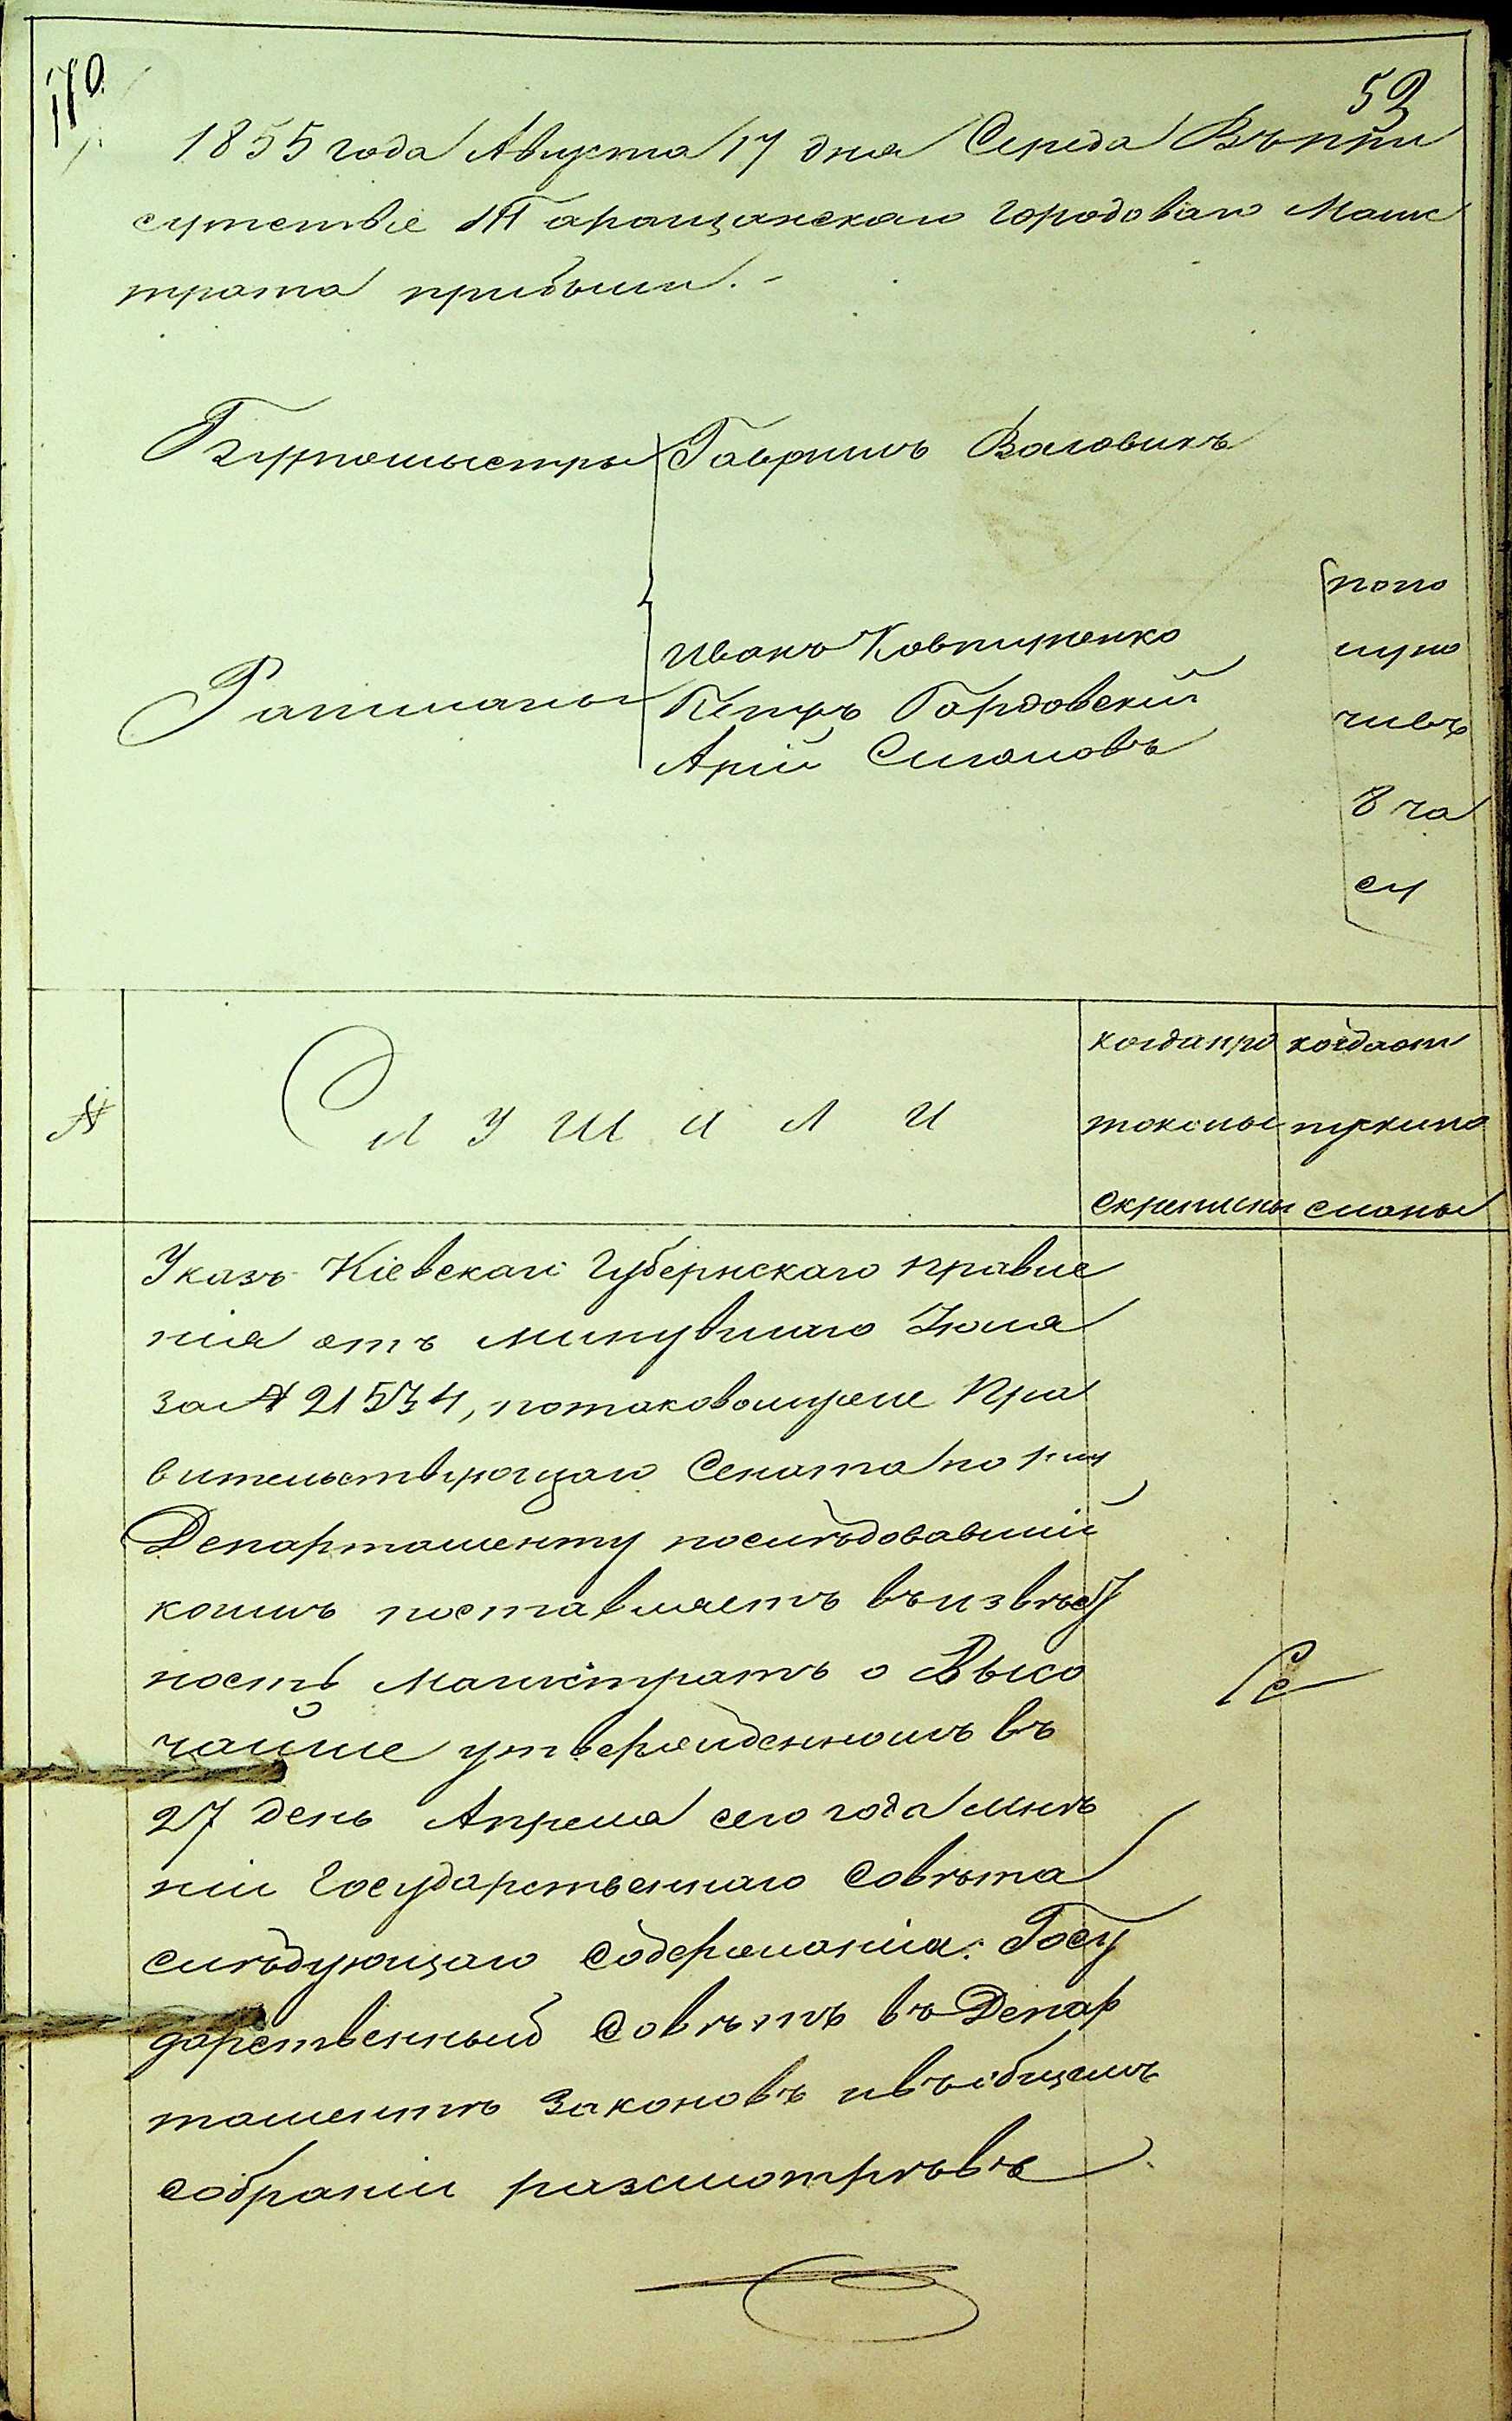 170.
53
1855 года Августа 17 дня Середа Въ при
сутствіе Таращанскаго городоваго Маги
страта прибыли.-
Бургомыстры Гавриилъ Воловикъ
Ратманы
Иванъ Ковтуненко
Петръ Гордовскій
Арій
попо
луно
чивъ
8 ча
су
№
Слушали
когда про
токолы
скреплены
когда от
пуски по
сланы
Указъ Кіевскаго Губернскаго правле
нія отъ минувшаго Іюля
за № 21534, по таковому же Пра
вительствующаго Сената по 1му
Департаменту последовавшій
коимъ поставляетъ въ извѣст
ность Магистратъ о Высо
чайше утвержденномъ въ
27 день Апреля сего года мнѣ
ніи Государственнаго Совѣта
слѣдующаго содержанія: Госу
дарственный Совѣтъ въ Депар
таментѣ Законовъ и въ общемъ
собраніи разсмотрѣвъ